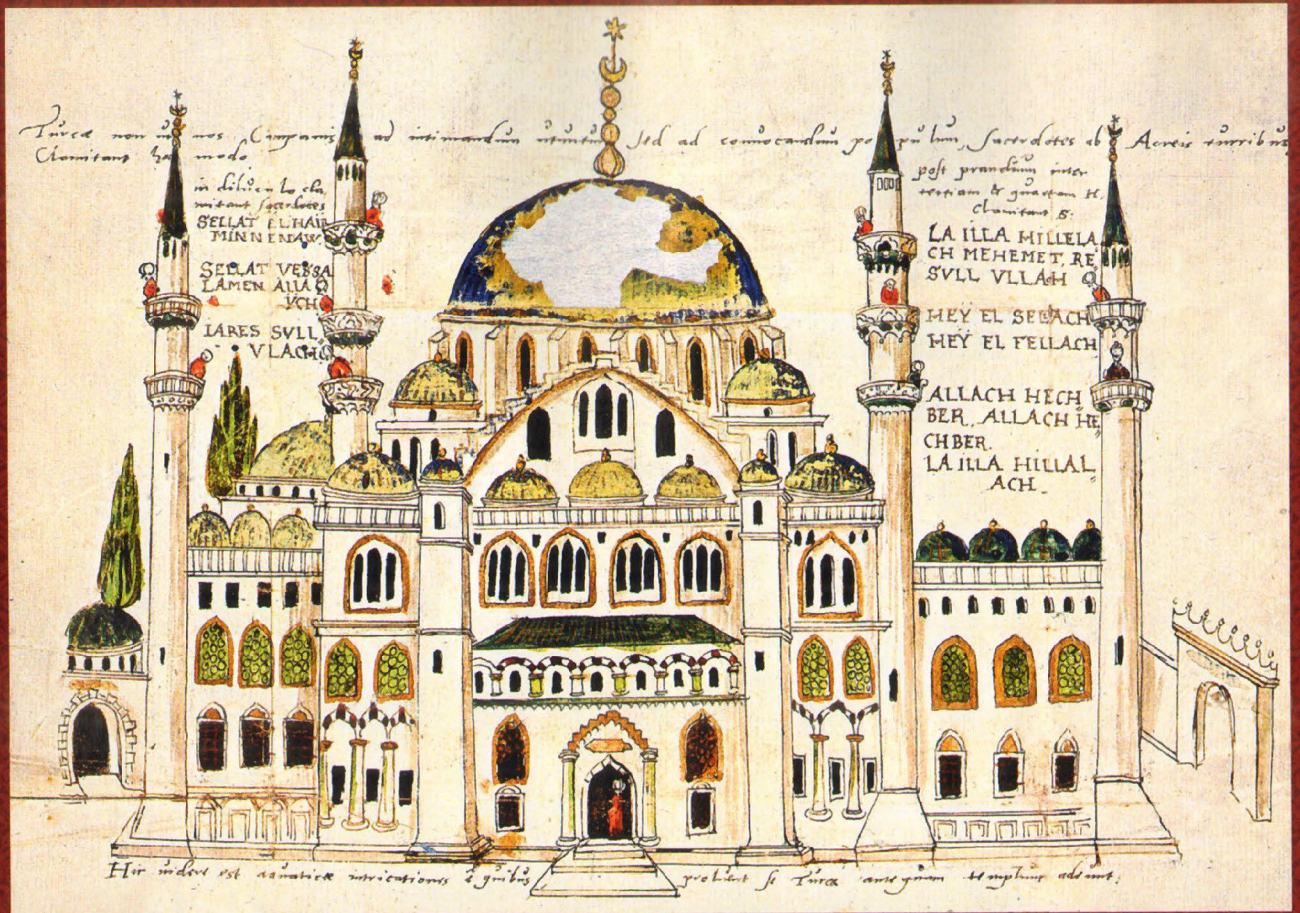 Turcæ non ut nos Campanis ad intimandum utuntur sed ad convocandum populum, sacerdotes ab Aereis turribus
Clamitant hoc modo
in diluculo cla,
mitant sacerdotes
SELLAT EL HAII
MINNENAW.
SELLAT VESSA
LAMEN ALLA
VCH
IARES SVLL,
VLACH
post prandium inter
tertiam & quartam H.
Clamitant s:
LA ILLA HILLELA
CH MEHEMET, RE
SVLL VLLAH
HEŸ EL SELACH
HEŸ EL FELLACH
ALLACH HECH
BER, ALLACH HE
CHBER.
LA ILLA HILLAL
ACH.
Hic videre est aquaticæ intricationes è quibus proluunt se Turcæ antequam templum adeunt: